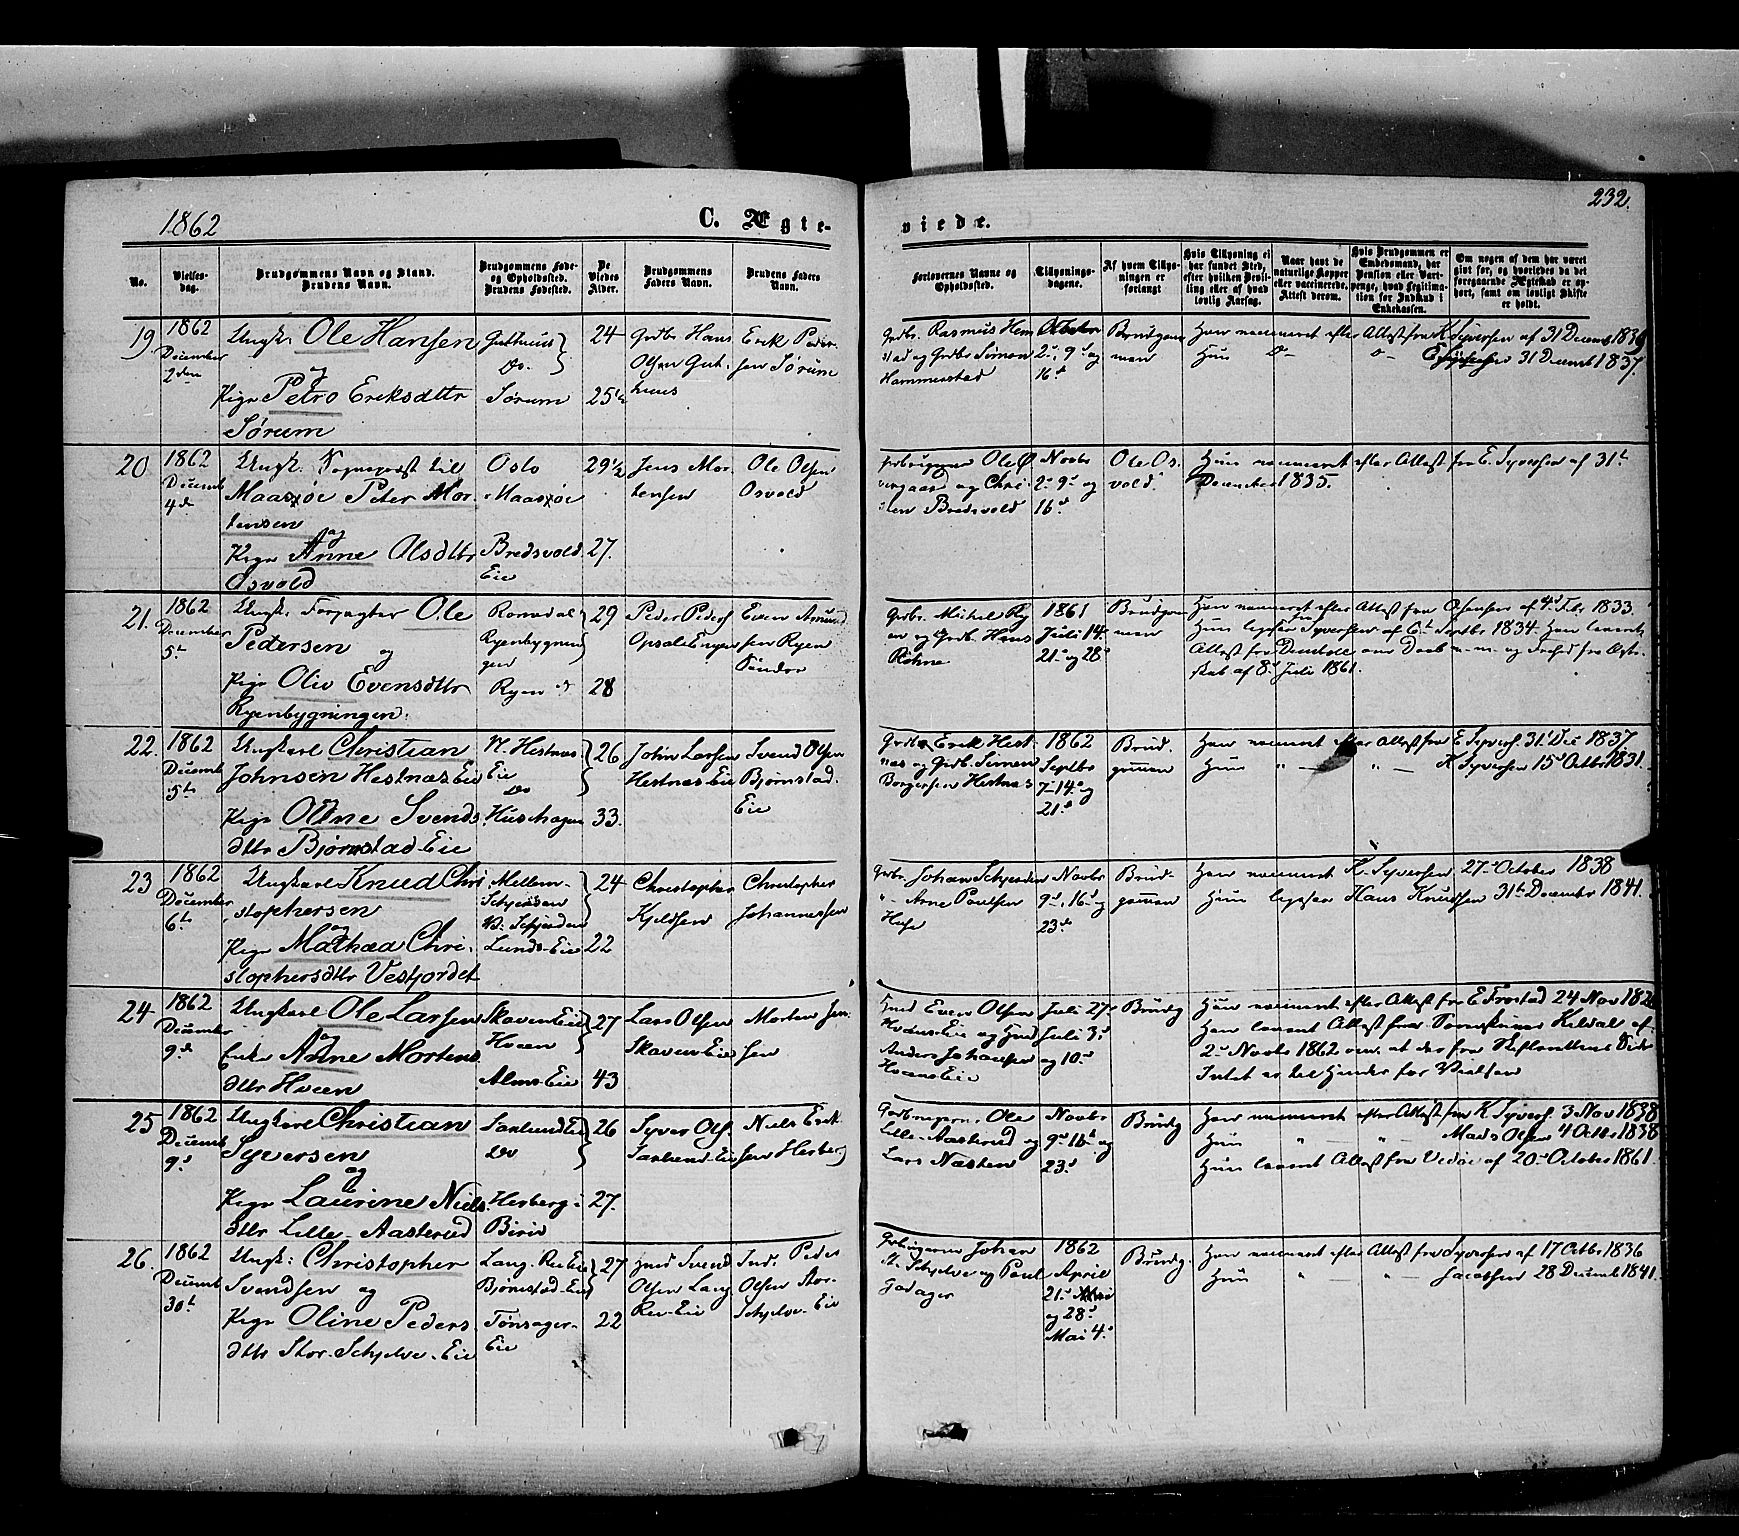 232.
1862
C. Ægte-
viede.
No.
Vielses-
dag.
Brudgommens Navn og Stand.
Brudens Navn.
Brudgommens Føde-
og Opholdssted.
Brudens Fødested.
De
Viedes
Alder.
Brudgommens
Faders Navn.
Brudens Faders
Navn.
Forlovernes Navne og
Opholdssted.
Tillysnings-
dagene.
Af hvem Tillys-
ningen er
forlangt
Hvis Tillysning ei
har fundet Sted,
efter hvilken Bevil-
ling eller af hvad
lovlig Aarsag.
Naar havt de
naturlige Kopper
eller vaccinerede.
Attest derom.
Hvis Brudgommen er
Embedsmand, har
Pension eller Vart-
penge, hvad Legitima-
tion for Indskud i
Enkekassen.
Om nogen af dem har været
gift før, og hvorledes da det
foregaaende Ægteskab er op-
hørt, samt om lovligt Skifte
er holdt.
19.
1862
December
2den
Ungk. Ole Hansen
og
Pige Petro Eriksdttr
Sørum
Guthuus
Do.
Sørum
24
25½
Grdbr Hans
Olsen Gut-
huus
Erik Peder-
sen Sørum
Grdbr. Rasmus
og Grdbr Simen
Hammerstad
2. 9d og
16d
Brudgom
men
Han vaccineret efter Attest fra K Syversen af 31 Decemb 1836
Hun Do 31 Decemb 1837.
20.
1862
Decemb
4de
Ungk. Sognepræst til
Maasøe Peter Mor
tensen
og
Pige Anne Olsdttr
Osvold
Oslo
Maasøe
Bredsvold
Eie
29½
27.
Jens Mor-
tensen
Ole Olsen
Osvold
Ole Ø
vergaard og Chri
sten Bredsvold
Novbr
2. 9d og
16d
Ole Os-
vold.
Hun vaccineret efter Attest fra E. Syversen af 31t
December 1835.
21.
1862
December
5t
Ungk. Forpagter Ole
Pedersen
og
Pige Oliv Evensdttr
Ryenbygningen.
Romedal
Ryenbygnin
gen
Ryen
29
28
Peder Peders
Opsal Engen
Even Amund
sen Ryen
Søndre
Grdbr. Mikkel Ry
en og Grdbr. Hans
Røhne
1861
Juli 14.
21. og 28d
Brudgom
men
Han vaccineret efter Attest fra Osensen af 4d Feb. 1833.
Hun ligesaa fra Syversen af 6t Septbr 1834. Han leveret
Attest fra om Daab m. m. og
af 8d Juli 1861.
22.
1862
Decemb
5te
Ungkarl Christian
Johnsen Hestnæs Eie
Pige Oline Svends
dttr Bjørnstad-Eie
N. Hestnæs
Eie
Do
Huschagen
26
33.
John Larsen
Hestnæs Eie
Svend Olsen
Bjørnstad.
Eie
Grdbr Erik Hest-
næs og Grdb. Simen
Borgersen Hestnæs
1862
Septbr
7-14. og
21d
Brud-
gommen
Han vaccineret efter Attest fra E Syvers. 31t Dec 1837
Hun " — " — K Syversen 15d Octbr 1831.
23
1862
December
6t
Ungkarl Knud Chri
stophersen
og
Pige Mathea Chri-
stophersdttr Vestjordet
Mellem-
Schjerden
V. Schjerden
Lunds-Eie
24
22
Christopher
Kjeldsen
Christopher
Johannessen
Grdbr. Johan Schjerden
" Arne Poulsen
Novbr
9d, 16d og
23d
Brud-
gommen
Han vaccineret K. Syversen 27. October 1838
Hun ligesaa Hans Knudsen 31t December 1841.
24
1862
December
9d
Ungkarl Ole Larsen
og
Enke Anne Mortens
dttr Hveen
Skaven Eie
Hveen
Alms-Eie
27
43
Lars Olsen
Skaven Eie
Morten Jen-
sen
Hmd Even Olsen
Hveens Eie og Hmd
Anders Johansen
Hveens Eie
Juli 27
Juli 3d
og 10d
Brudg
Hun vaccineret efter Attest fra E Frostad 24 Nov 182
Han leveret Attest fra Kildal af
2d Novbr 1862 om, at der fra Skifterettens Side
Intet er til Hinder for Vielsen
25
1862
Decemb
9d
Ungkarl Christian
Syversen
og
Pige Laurine Niels
dttr Lille-Aasterud
Saxlund Eie
Do
Herberg i
Birid
26
27.
Syver Ols.
Saxlund-Eie
Niels Erik-
sen Herberg
Gårdbruger. Ole
Lille-Aasterud og
Lars Næsten
Novbr
9d 16d og
23d
Brudg
Han vaccineret efter Attest fra K Syvers. 3 Nov 1838
Hun " " — Mads Olsen 4 Octbr 1838
Hun leveret Attest fra Vedøe af 20d October 1861.
26.
1862
Decemb
30t
Ungk: Christopher
Svendsen og
Pige Oline Peders
dttr Stor-Schjelve-Eie
Lang-Ree Eie
Bjørnstad-Eie
Tønsager-
Eie
27
22
Hmd Svend
Olsen Lang
Ree-Eie
Ind. Peder
Olsen Stor-
Schjelve-Eie
Johan
Schjelve og Poul
Godager
1862
April
21.
og 28d
Mai 4.
Brudg.
Han vaccineret efter Attest fra Syversen af 17 Octbr 1836
Hun " " — Jacobsen 28 Decemb 1841.